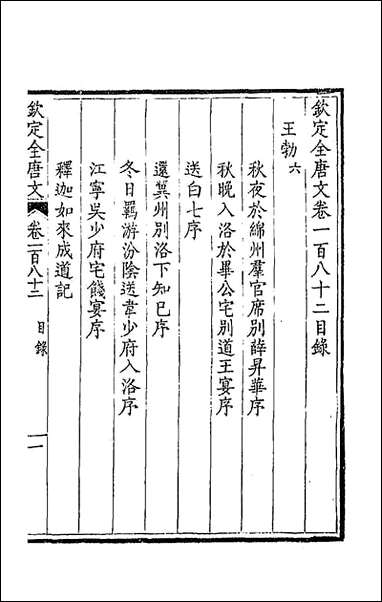 欽定全唐文卷一百八十二目錄
王勃六
秋夜於綿州羣官席別薛昇華序
秋晚入洛於畢公宅別道王宴序
送白七序
還冀州別洛下知己序
冬日羇游汾陰送韋少府入洛序
江寧吳少府宅餞宴序
釋迦如來成道記
欽定全唐文 卷一百八十二 目錄 一